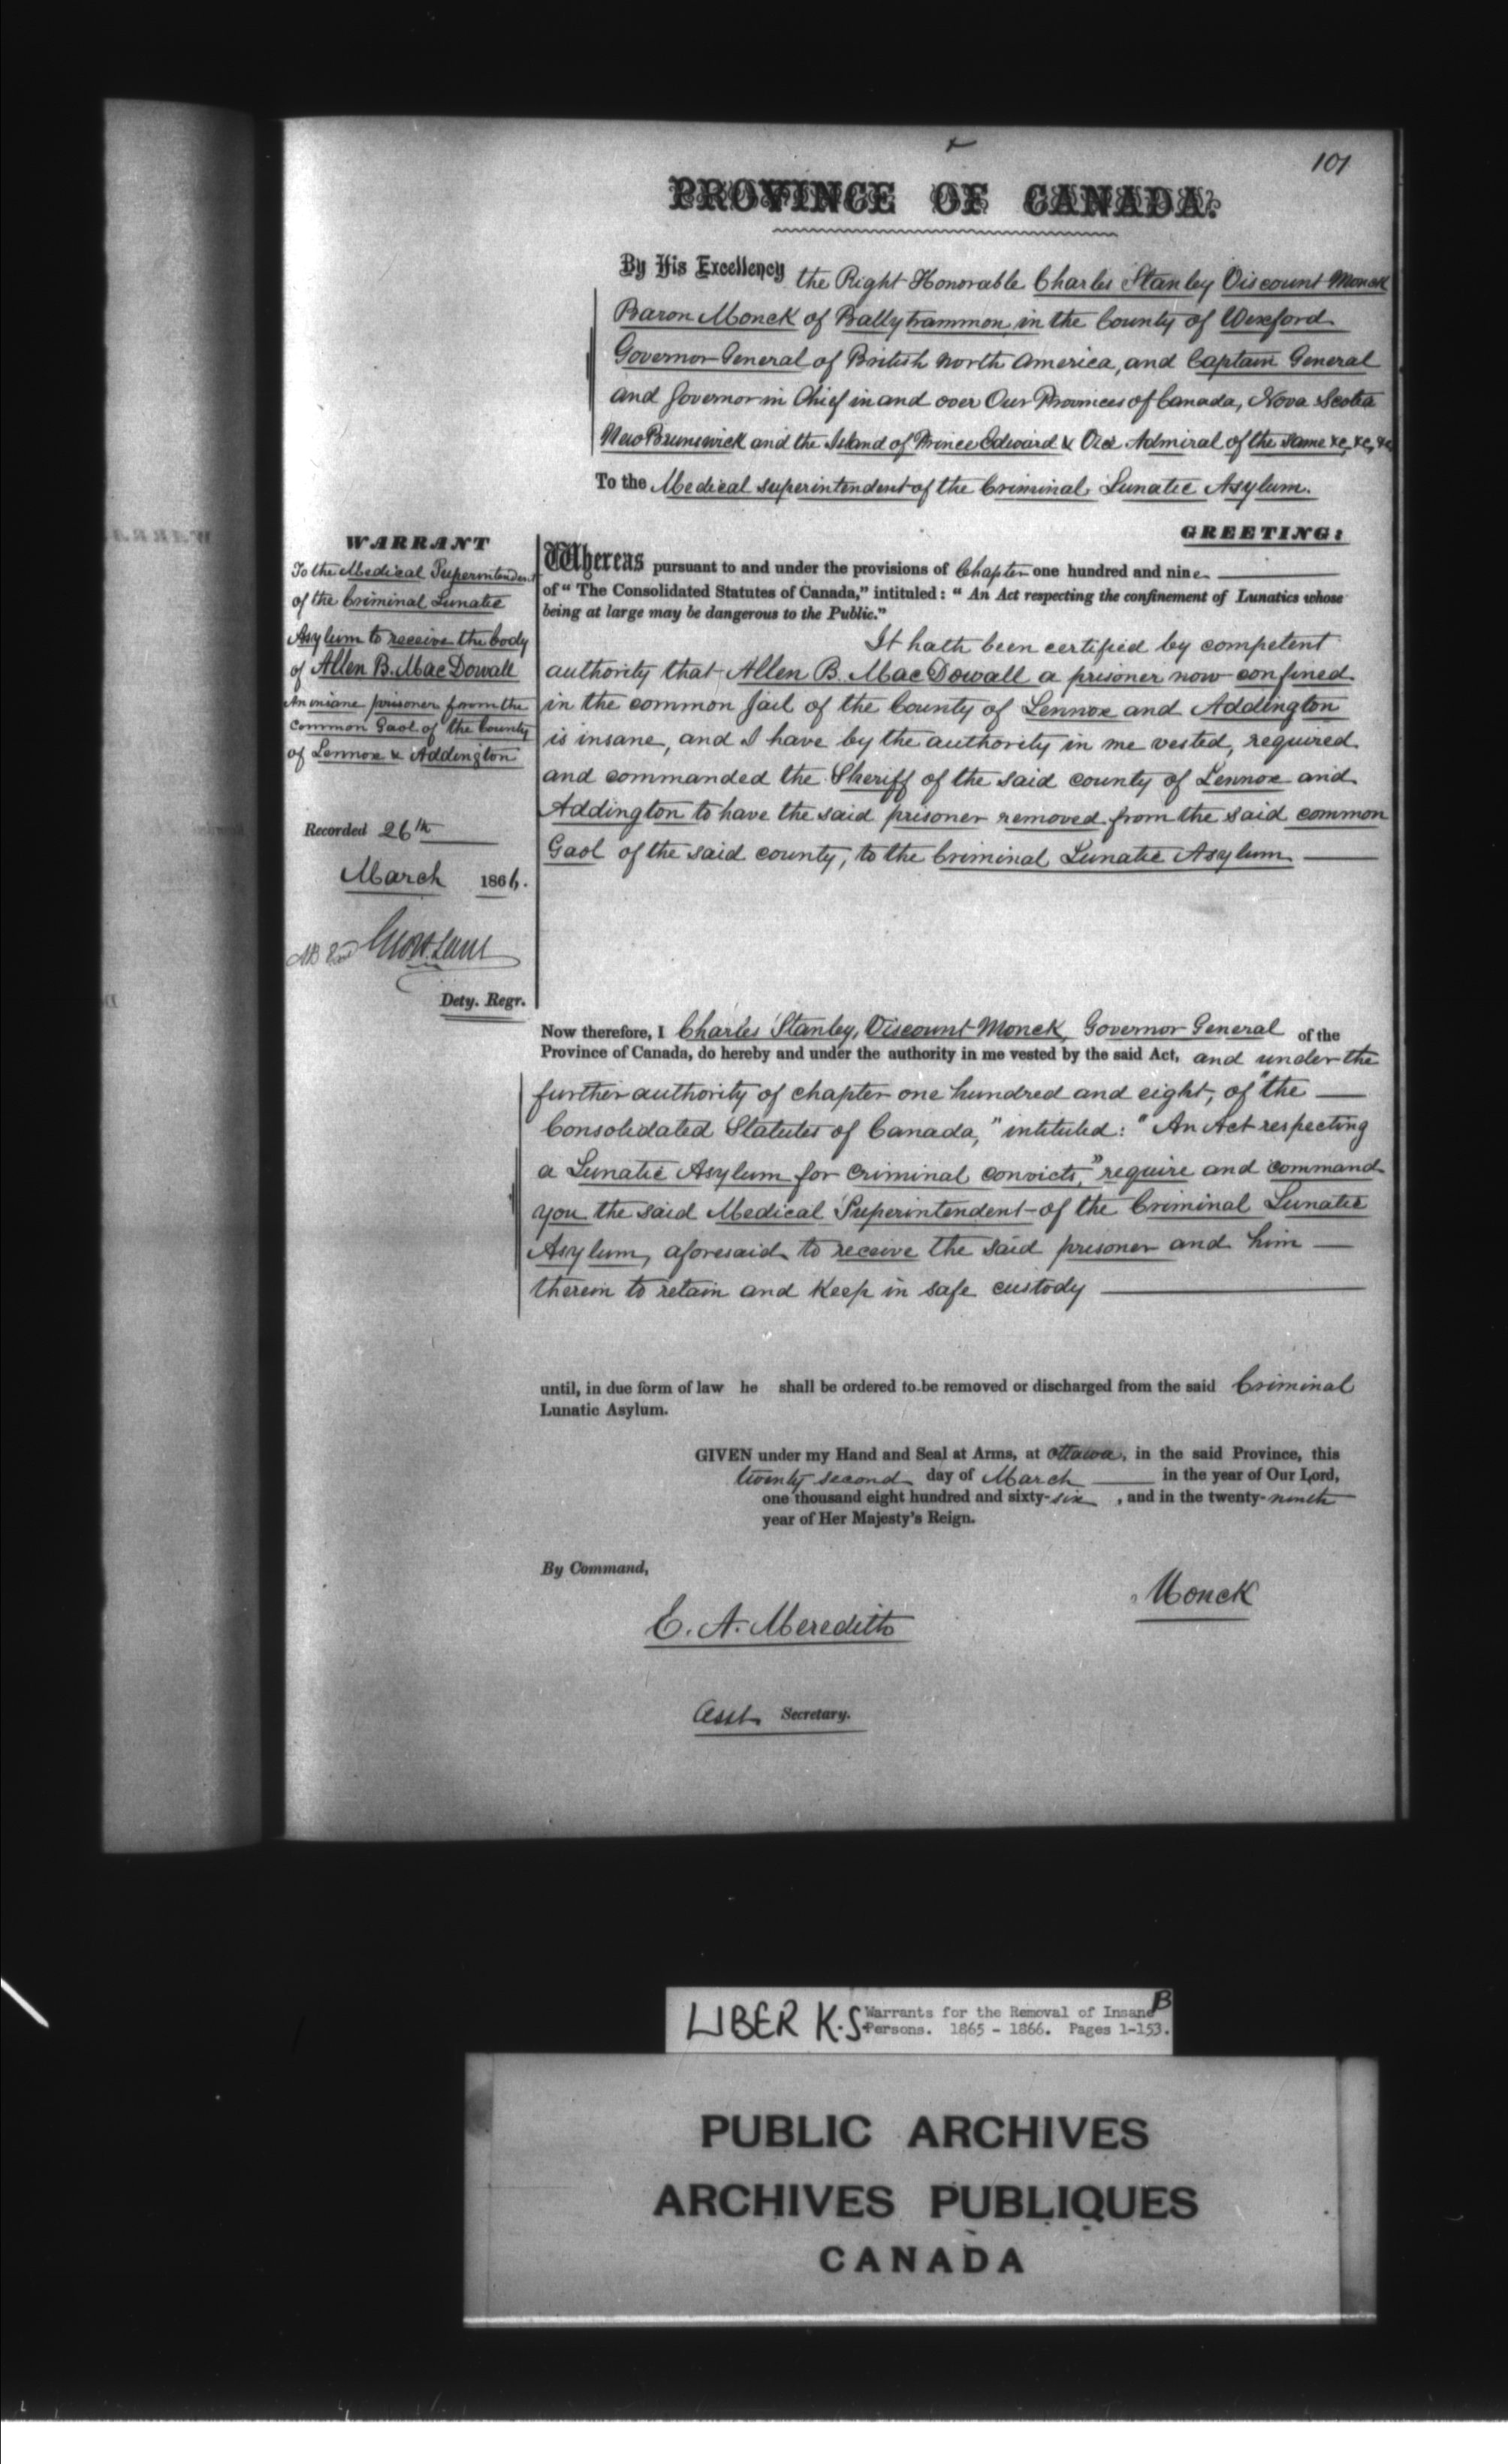 101
PROVINCE OF CANADA.
By His Excellency the Right Honorable Charles Stanley Viscount Monck
Baron Monck of Ballytrammon, in the County of Wexford
Governor General of British North America, and Captain General
and Governor in Chief in and over Our Provinces of Canada, Nova Scotia
New Brunswick and the Island of Prince Edward & Vice Admiral of the same &c, &c, &c
To the Medical superintendent of the Criminal Lunatic Asylum.
GREETING:
WARRANT
To the Medical Superintendent
of the Criminal Lunatic
Asylum to receive the body
of Allen B. MacDowall
An insane prisoner from the
common Gaol of the County
of Lennox & Addington
Recorded 26th
March 1866.
Dety. Regr.
Whereas pursuant to and under the provisions of Chapter one hundred and nine
of "The Consolidated Statutes of Canada," intituled: "An Act respecting the confinement of Lunatics whose
being at large may be dangerous to the Public."
It hath been certified by competent
authority that Allen B. MacDowall a prisoner now confined
in the common Jail of the County of Lennox and Addington
is insane, and I have by the authority in me vested, required
and commanded the Sheriff of the said county of Lennox and
Addington to have the said prisoner removed from the said common
Gaol of the said county, to the Criminal Lunatic Asylum
Now therefore, I Charles Stanley, Viscount Monck, Governor General of the
Province of Canada, do hereby and under the authority in me vested by the said Act, and under the
further authority of chapter one hundred and eight, of "the
Consolidated Statutes of Canada," intituled: "An Act respecting
a Lunatic Asylum for criminal convicts," require and command
you the said Medical Superintendent of the Criminal Lunatic
Asylum, aforesaid to receive the said prisoner and him
therein to retain and keep in safe custody
until, in due form of law he shall be ordered to be removed or discharged from the said Criminal
Lunatic Asylum.
GIVEN under my Hand and Seal at Arms, at Ottawa, in the said Province, this
twenty second day of March in the year of Our Lord,
one thousand eight hundred and sixty-six, and in the twenty-ninth
year of Her Majesty's Reign.
By Command,
Monck
E. A. Meredith
Asst Secretary.
LIBER K.S. Warrants for the Removal of Insane B
Persons. 1865 - 1866. Pages 1-153.
PUBLIC ARCHIVES
ARCHIVES PUBLIQUES
CANADA